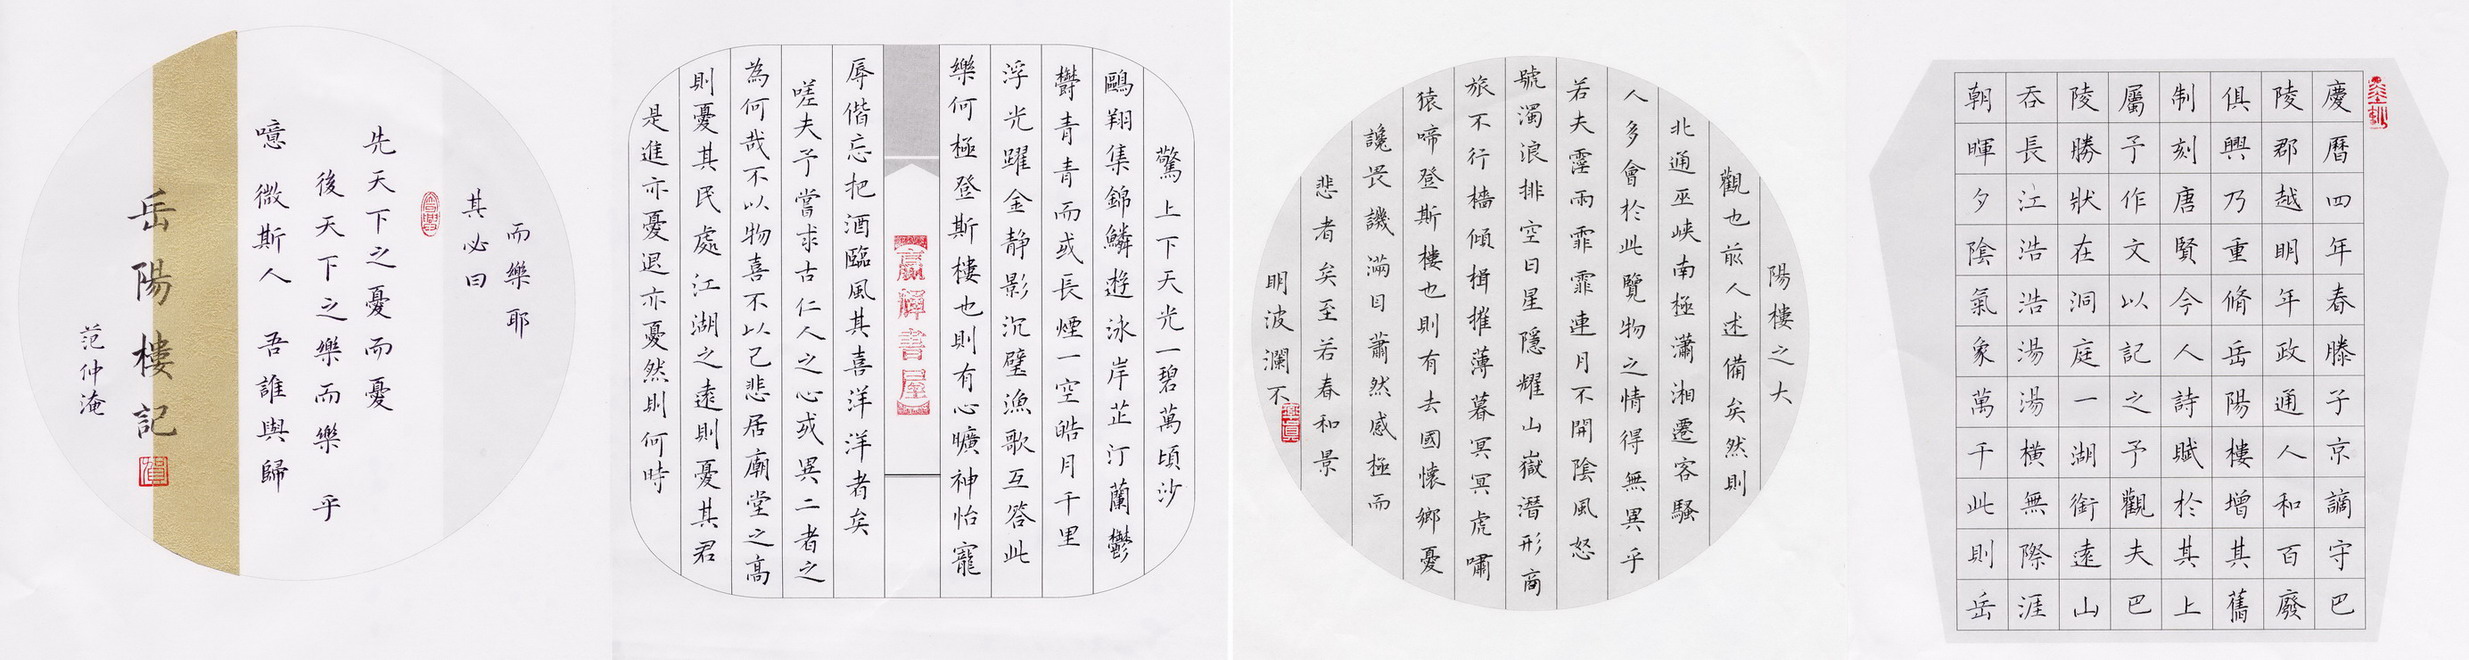 慶曆四年春滕子京謫守巴
陵郡越明年政通人和百廢
俱興乃重脩岳陽樓增其舊
制刻唐賢今人詩賦於其上
屬予作文以記之予觀夫巴
陵勝狀在洞庭一湖銜遠山
吞長江浩浩湯湯橫無際涯
朝暉夕陰氣象萬千此則岳
陽樓之大
觀也前人述備矣然則
北通巫峽南極瀟湘遷客騷
人多會於此覽物之情得無異乎
若夫霪雨霏霏連月不開陰風怒
號濁浪排空日星隱耀山嶽潛形商
旅不行檣傾楫摧薄暮冥冥虎嘯
猿啼登斯樓也則有去國懷鄉憂
讒畏譏滿目蕭然感極而
悲者矣至若春和景
明波瀾不
驚上下天光一碧萬頃沙
鷗翔集錦鱗遊泳岸芷汀蘭鬱
欝青青而或長煙一空皓月千里
浮光躍金静影沉璧漁歌互答此
樂何極登斯樓也則有心曠神怡寵
辱偕忘把酒臨風其喜洋洋者矣
嗟夫予嘗求古仁人之心或異二者之
為何哉不以物喜不以己悲居廟堂之高
則憂其民處江湖之遠則憂其君
是進亦憂退亦憂然則何時
而樂耶
其必曰
先天下之憂而憂
後天下之樂而樂 乎
噫 微斯人 吾誰與歸
岳陽樓記
范仲淹